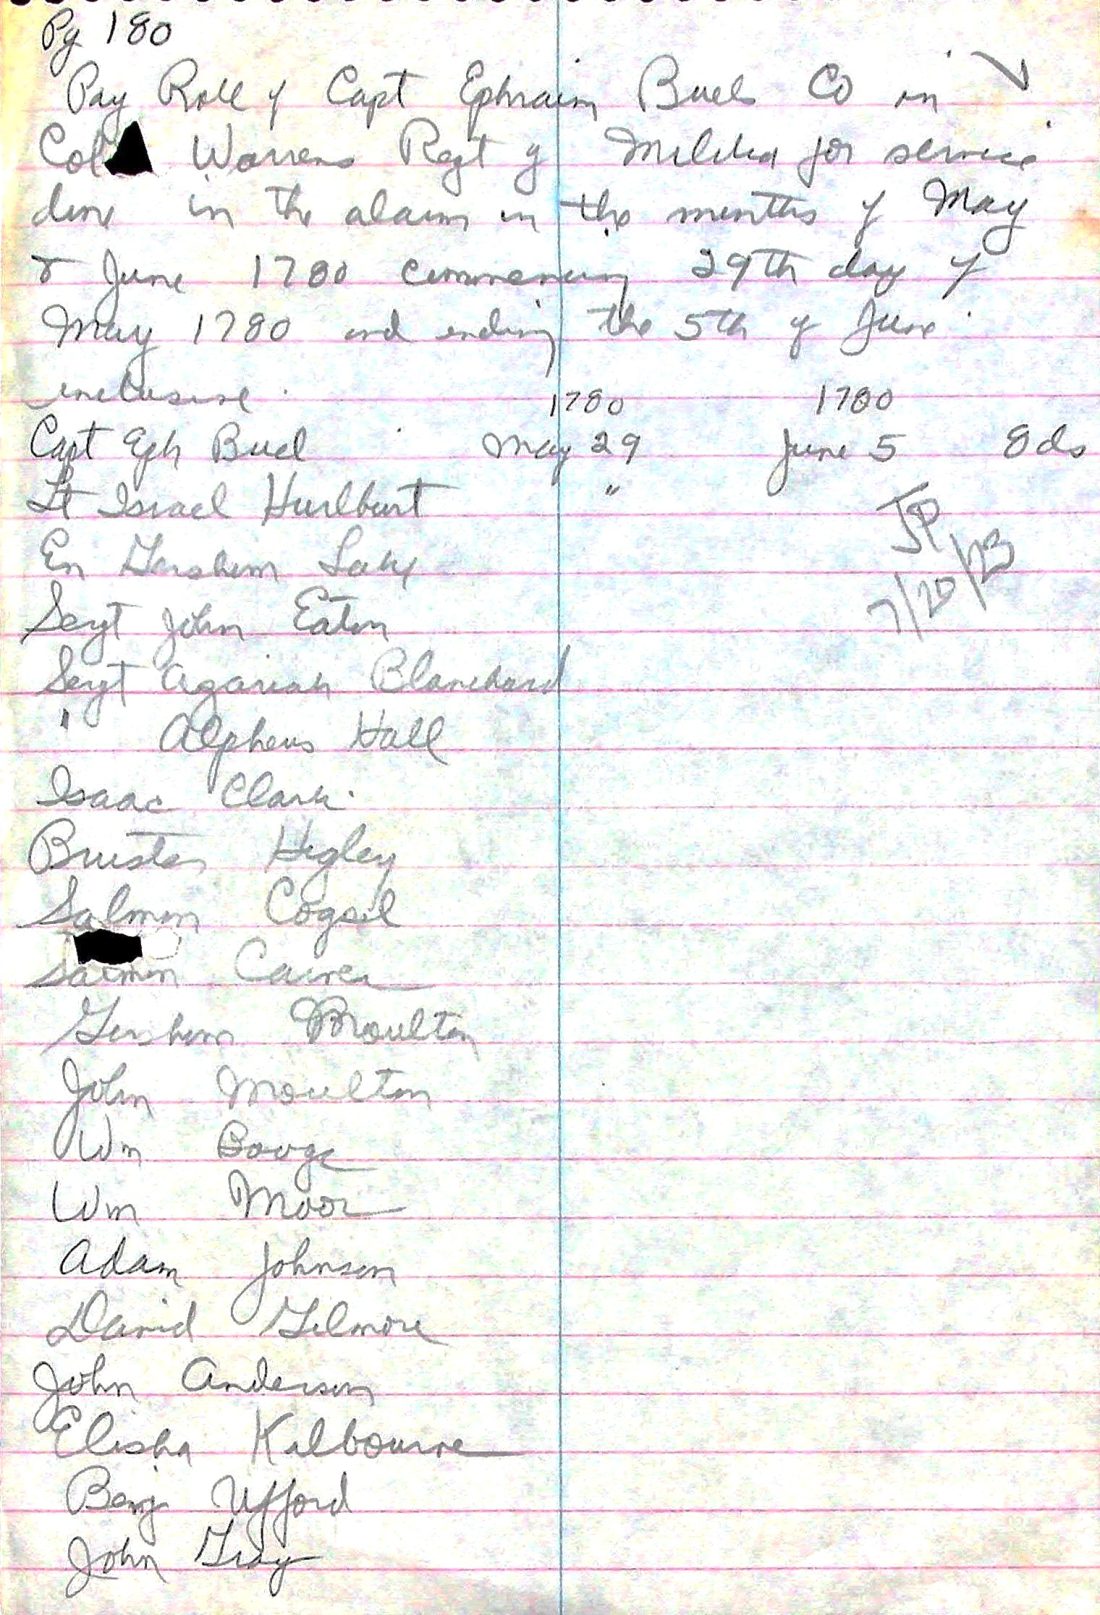 Pg 180
Pay Roll of Capt Ephraim Buels Co in
Col Warrens Regt of Militia for service
done in the alarm in the months of May
& June 1780 commencing 29th day of
May 1780 and ending the 5th of June
inclusive. 1780 1780
Capt Eph Buel May 29 June 5 8 ds
Lt Israel Hurlburt "
JP
En Gershom Lake
7/20/23
Sergt John Eaton
Sergt Azariah Blanchard
" Alpheus Hall
Isaac Clark
Brister Higley
Salmon Cogsel
Salmon Carver
Gershom Moulton
John Moulton
Wm Bouge
Wm Moor
Adam Johnson
David Gilmore
John Anderson
Elisha Kalbourne
Benj Ufford
John Gray